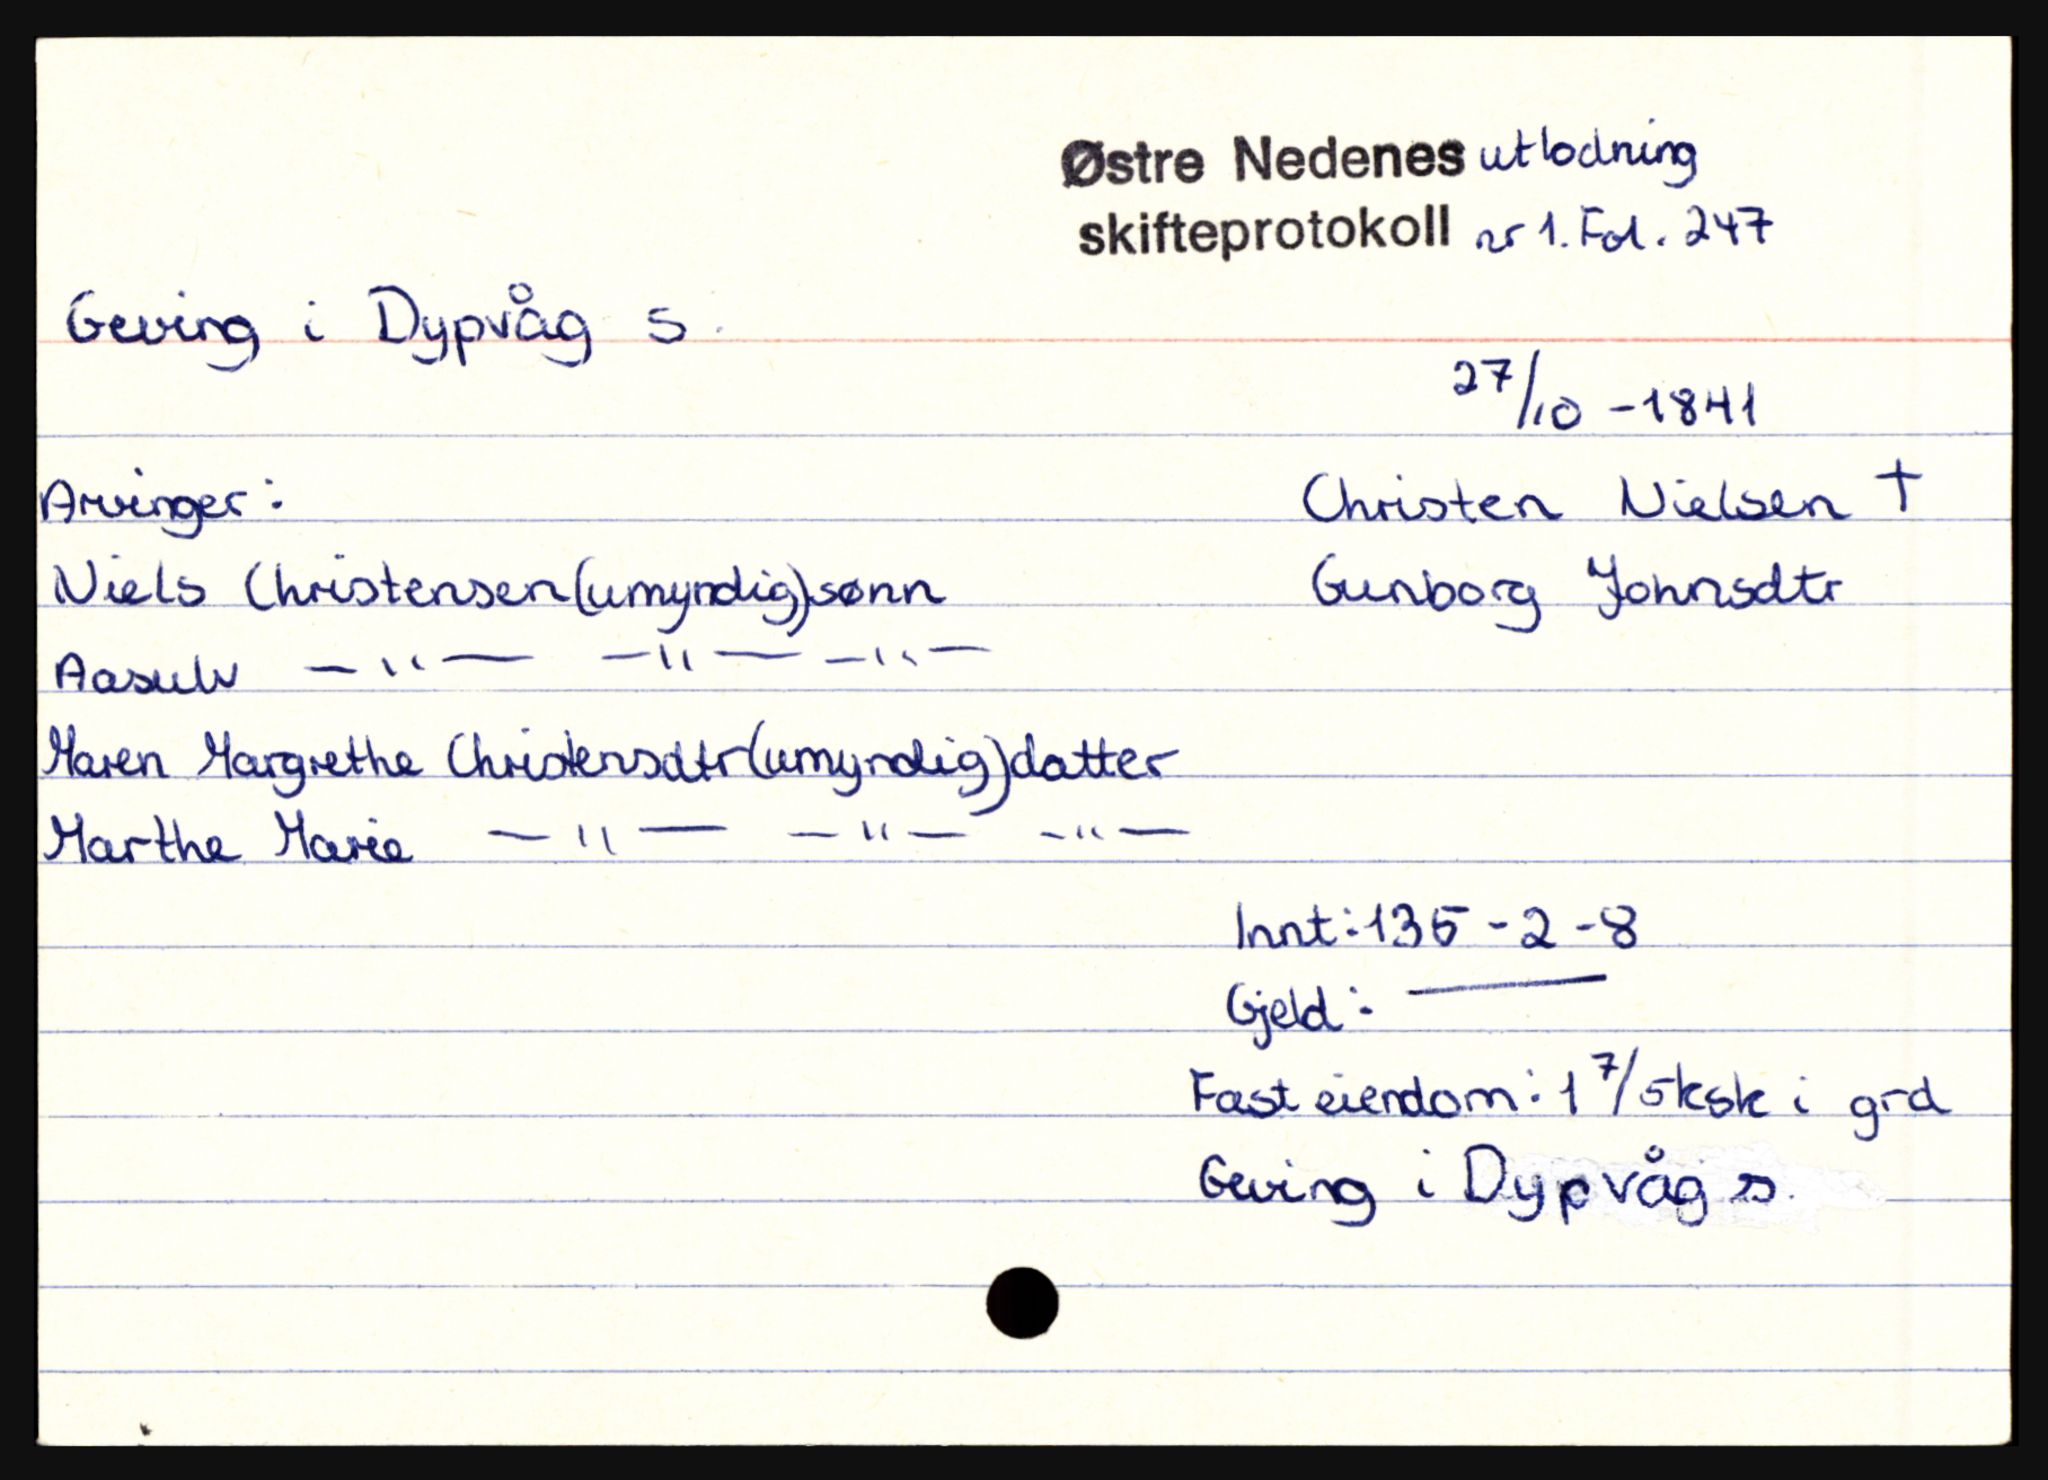 Østre Nedenes utlodning
skifteprotokoll nr 1. Fol. 247
Geving i Dypvåg s.
27/10 - 1841
Arvinger: Christen Nielsen †
Niels Christensen (umyndig) sønn Gunborg Johnsdtr
Aasulv —"— —"— —"—
Maren Margrethe Christensdtr (umyndig) datter
Marthe Marie —"— —"— —"—
Innt: 135 - 2 - 8
Gjeld: ——
Fast eiendom: 1 7/5 ksk i grd
Geving i Dypvåg s.